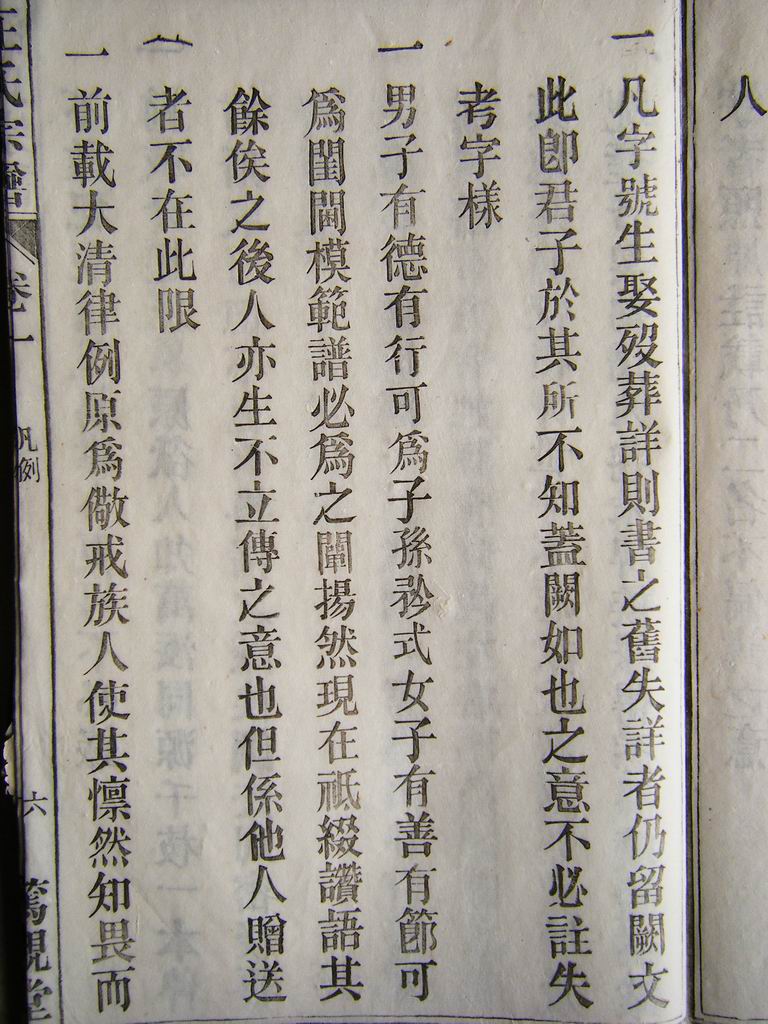 人
一凡字號生娶歿葬詳則書之舊失詳者仍留闕文
此卽君子於其所不知蓋闕如也之意不必註失
考字樣
一男子有德有行可爲子孫矜式女子有善有節可
爲閨閫模範譜必爲之闡揚然現在祗綴讚語其
餘俟之後人亦生不立傳之意也但係他人贈送
者不在此限
一前載大清律例原爲儆戒族人使其懍然知畏而
卷一
凡例
六